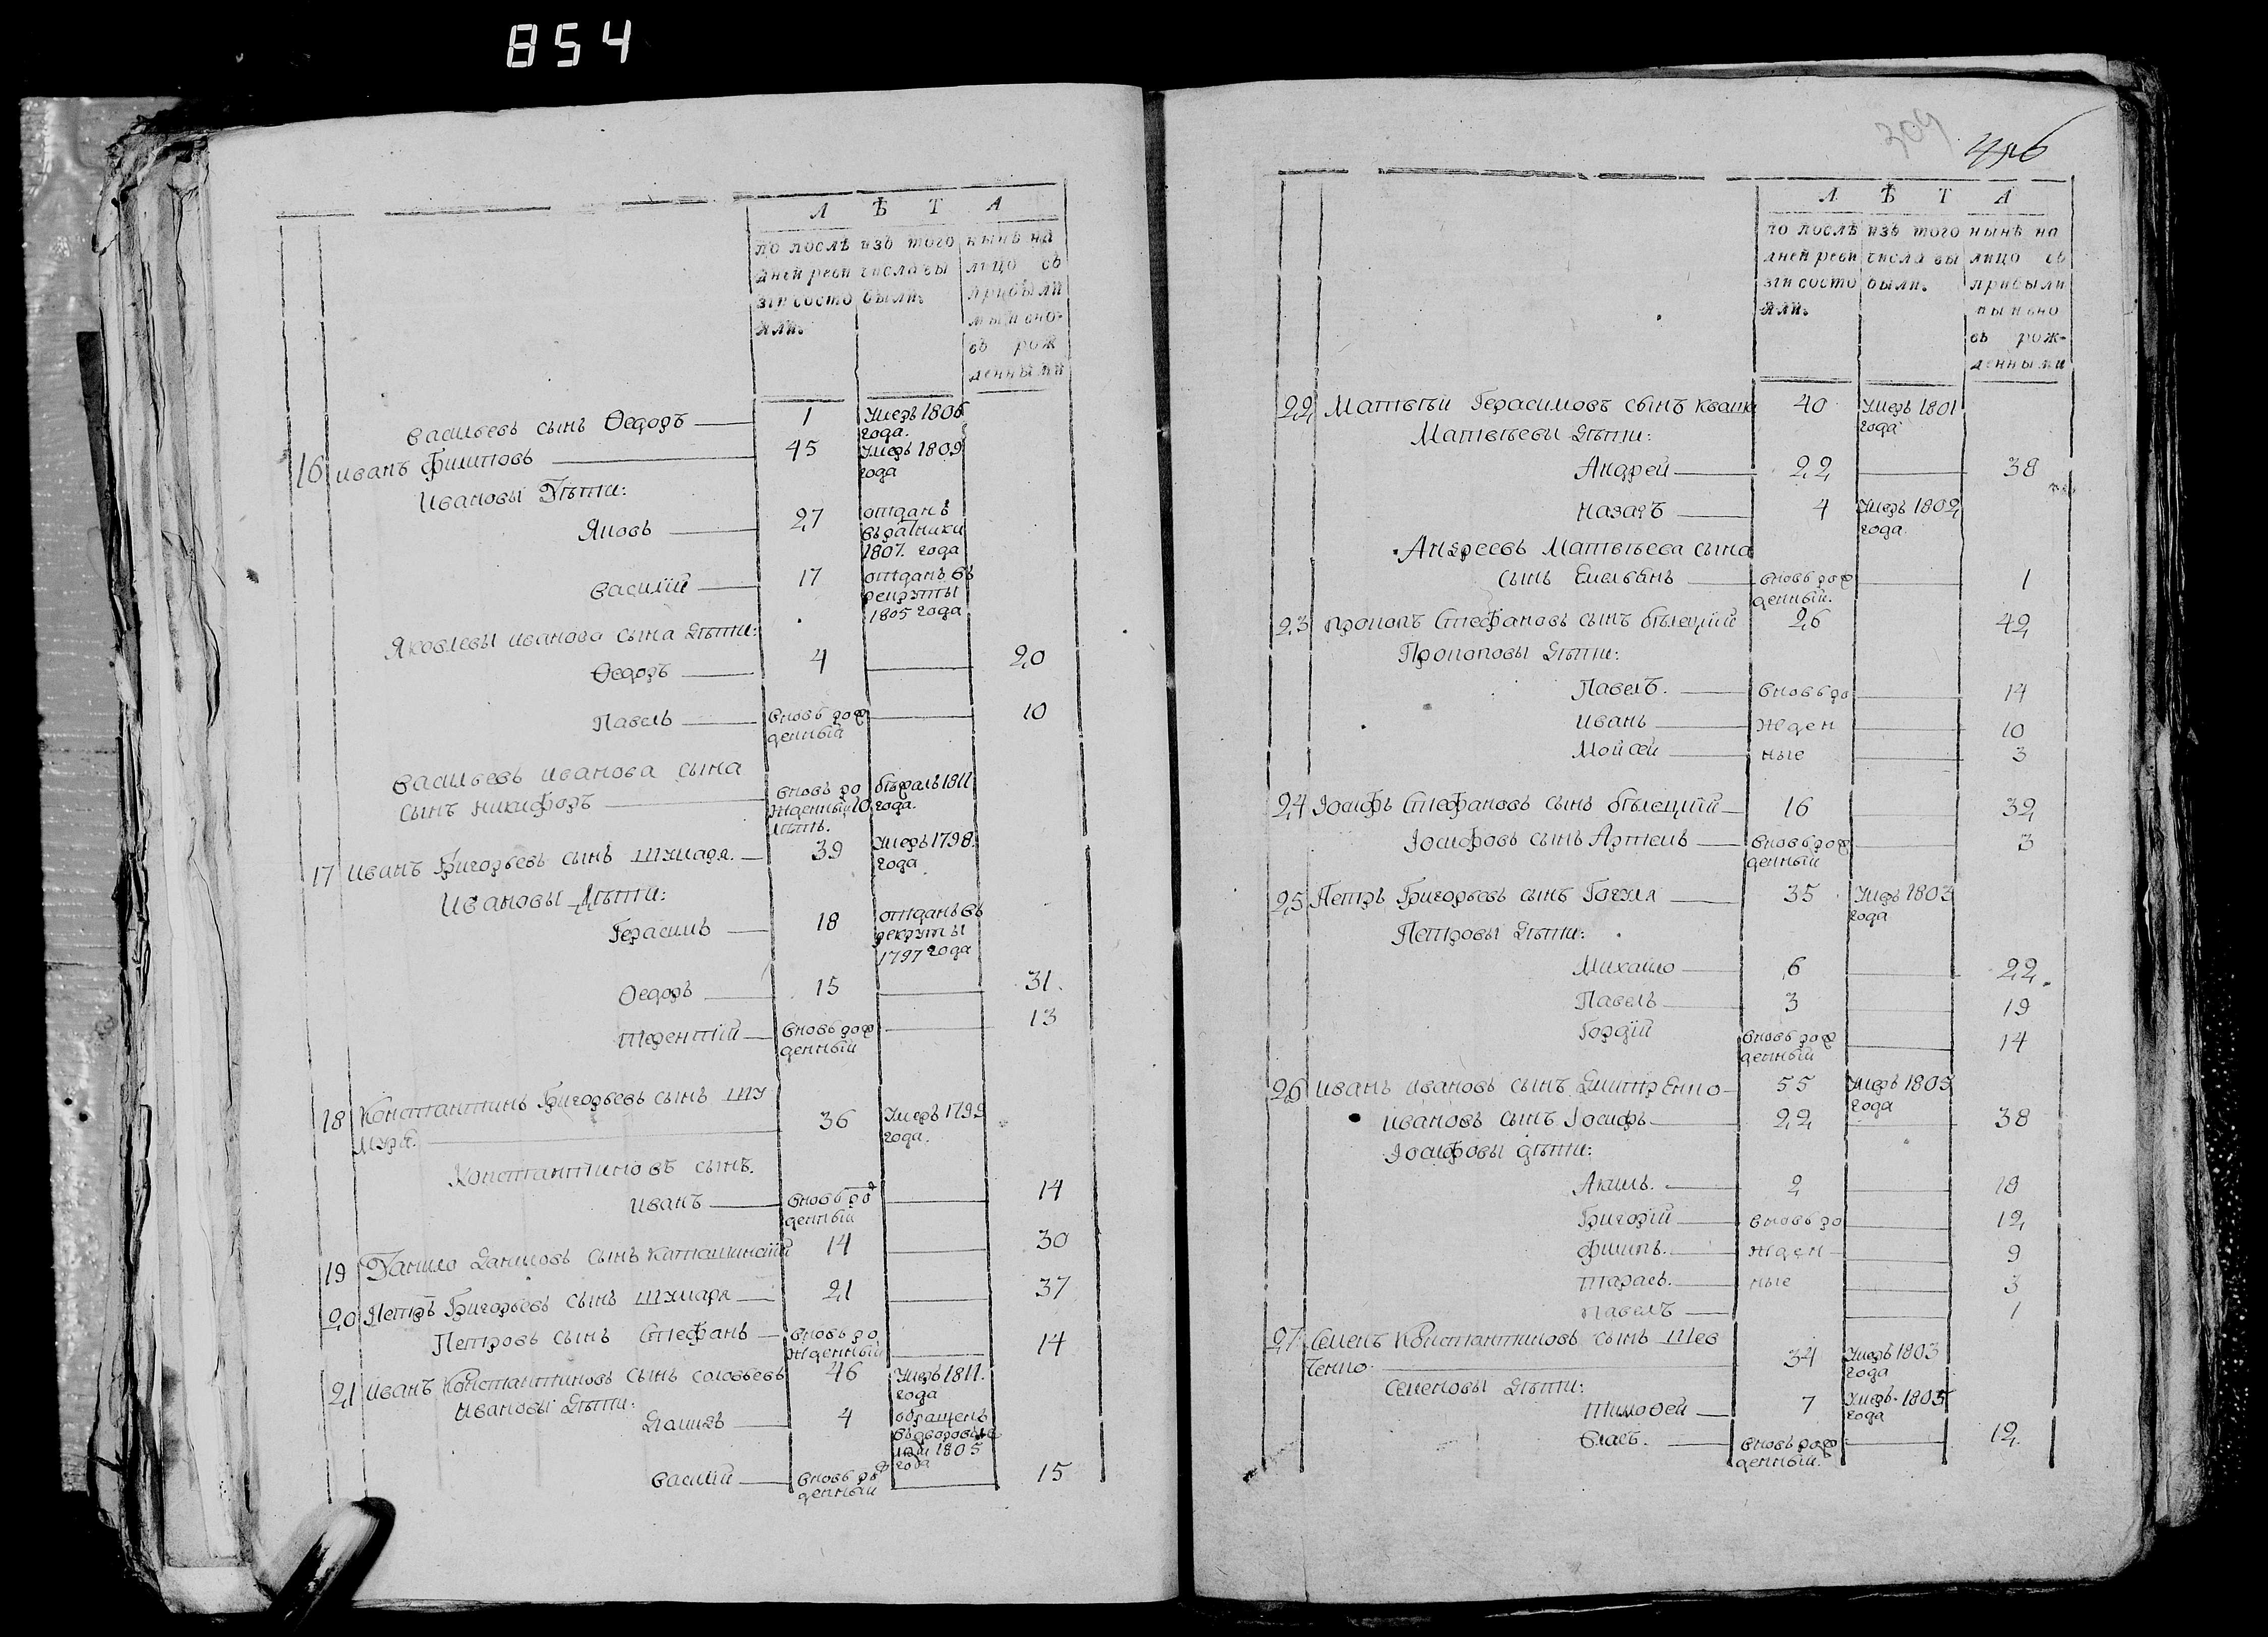 854
Л Ѣ Т А
по послѣ изъ того нынѣ на
дней реви числа вы лицо съ
зіи состо были. прибыли
яли. ми и вно-
въ рож
денными
Васильевъ сынъ Ѳедоръ 1 Умеръ 1806
года.
16 Иванъ Филиповъ 45 Умеръ 1809
года
Ивановы Дѣти:
Яковъ 27 отданъ
въ ратники
1807. года
Василій 17 отданъ въ
рекруты
1805 года
Яковлевы Иванова сына дѣти:
Ѳедоръ 4 20
Павелъ вновь рож 10
денный
Васильевъ Иванова сына
сынъ Никифоръ вновь ро бѣжалъ 1811
жденный 10 года.
лѣтъ.
17 Иванъ Григорьевъ сынъ Шумаря. 39 Умеръ 1798.
года
Ивановы Дѣти:
Герасимъ 18 отданъ въ
рекруты
1797 года
Ѳедоръ 15 31.
Терентій вновь рож 13
денный
18 Константинъ Григорьевъ сынъ Шу
маря. 36 Умеръ 1799
года.
Константиновъ сынъ.
Иванъ вновь рож 14
денный
19 Данило Даниловъ сынъ 14 30
20 Петръ Григорьевъ сынъ Шумаря 21 37
Петровъ сынъ Стефанъ вновь ро 14
жденный
21 Иванъ Константиновъ сынъ Соловьевъ 46 Умеръ 1811.
года
Ивановы Дѣти:
Данилъ 4 обращенъ
въ дворовые
1805
года
Василій вновь рож 15
денный
309
Л Ѣ Т А
по послѣ изъ того нынѣ на
дней реви числа вы лицо съ
зіи состо были. прибыли
яли. ми и вно
въ рож-
денными
22 Матвѣй Герасимовъ сынъ Кваша 40 Умеръ 1801
года
Матвѣевы дѣти:
Андрей 22 38
Назаръ 4 Умеръ 1802
года.
Андреевъ Матвѣева сына
сынъ Емельянъ вновь рож 1
денный.
23 Прокопъ Стефановъ сынъ Бѣлецкій 26 42
Прокоповы дѣти:
Павелъ. вновь ро 14
Иванъ жден 10
Мойсей ные 3
24 Іосифъ Стефановъ сынъ Бѣлецкій 16 32
Іосифовъ сынъ Артемъ вновь рож 3
денный
25 Петръ Григорьевъ сынъ 35 Умеръ 1803
года
Петровы дѣти:
Михайло 6 22.
Павелъ 3 19
Гордій вновь рож 14
денный
26 Иванъ Ивановъ сынъ Дмитренко 55 Умеръ 1805
года
Ивановъ сынъ Іосифъ 22 38
Іосифовы дѣти:
Акимъ. 2 18
Григорій вновь ро 12
Филипъ. жден 9
Тарасъ. ные 3
Павелъ 1
27 Семенъ Константиновъ сынъ Шев
ченко. 34 Умеръ 1803
года
Семеновы дѣти:
Тимоѳей 7 Умеръ. 1805
года
Власъ. вновь рож 12.
денный.